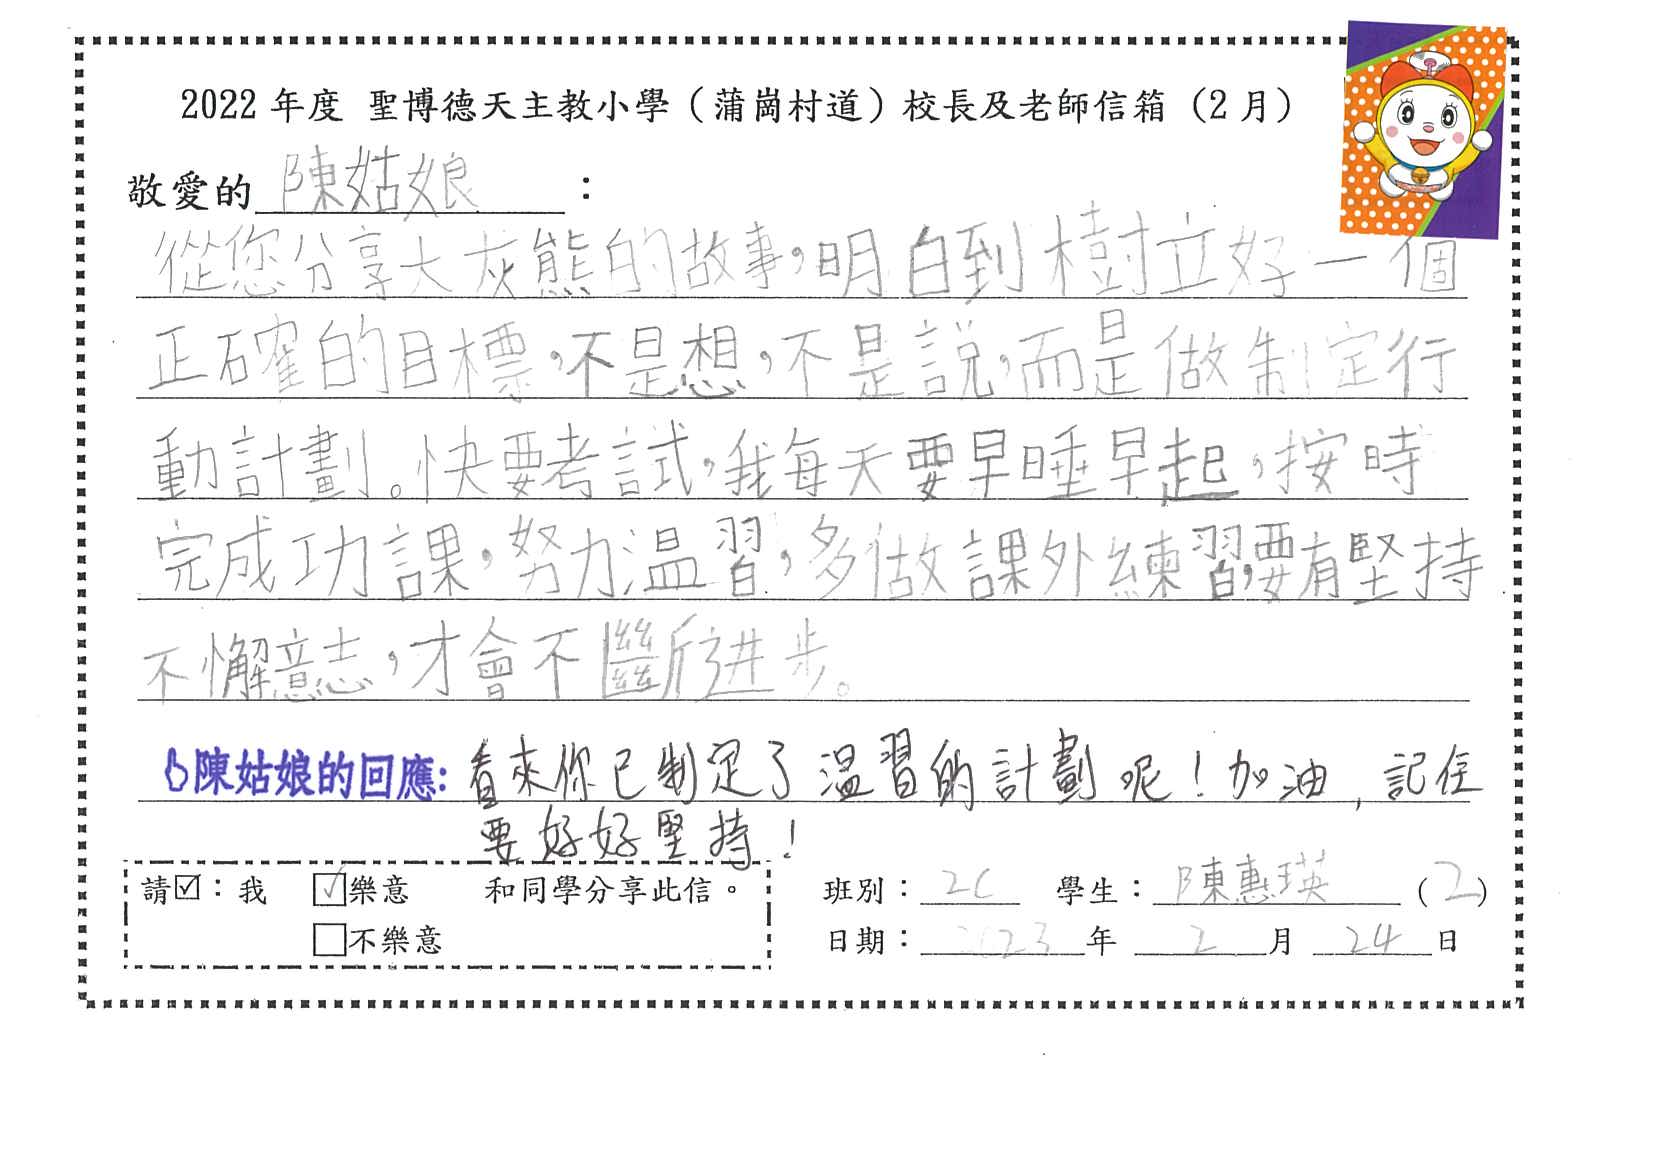 2022 年度 聖博德天主教小學（蒲崗村道）校長及老師信箱（2 月）
敬愛的 陳姑娘 ：
從您分享大灰熊的故事，明白到樹立好一個
正確的目標，不是想，不是說，而是做制定行
動計劃。快要考試，我每天要早睡早起，按時
完成功課，努力温習，多做課外練習，要有堅持
不懈意志，才會不斷進步。
陳姑娘的回應: 看來你已制定了温習的計劃呢！加油，記住
要好好堅持！
請☑：我 ☑樂意 和同學分享此信。
□不樂意
班別：2C 學生：陳惠瑛（2）
日期：2023 年 2 月 24 日